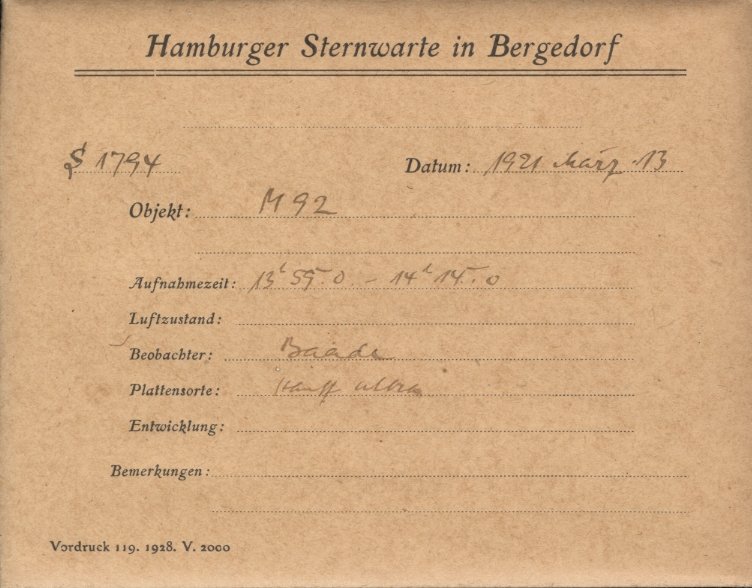 Hamburger Sternwarte in Bergedorf
S 1794 Datum: 1921 März 13
Objekt: M 92
Aufnahmezeit: 13h 55m.0 – 14h 15m.0
Luftzustand:
Beobachter: Baade
Plattensorte: Hauff ultra
Entwicklung:
Bemerkungen:
Vordruck 119. 1928. V. 2000